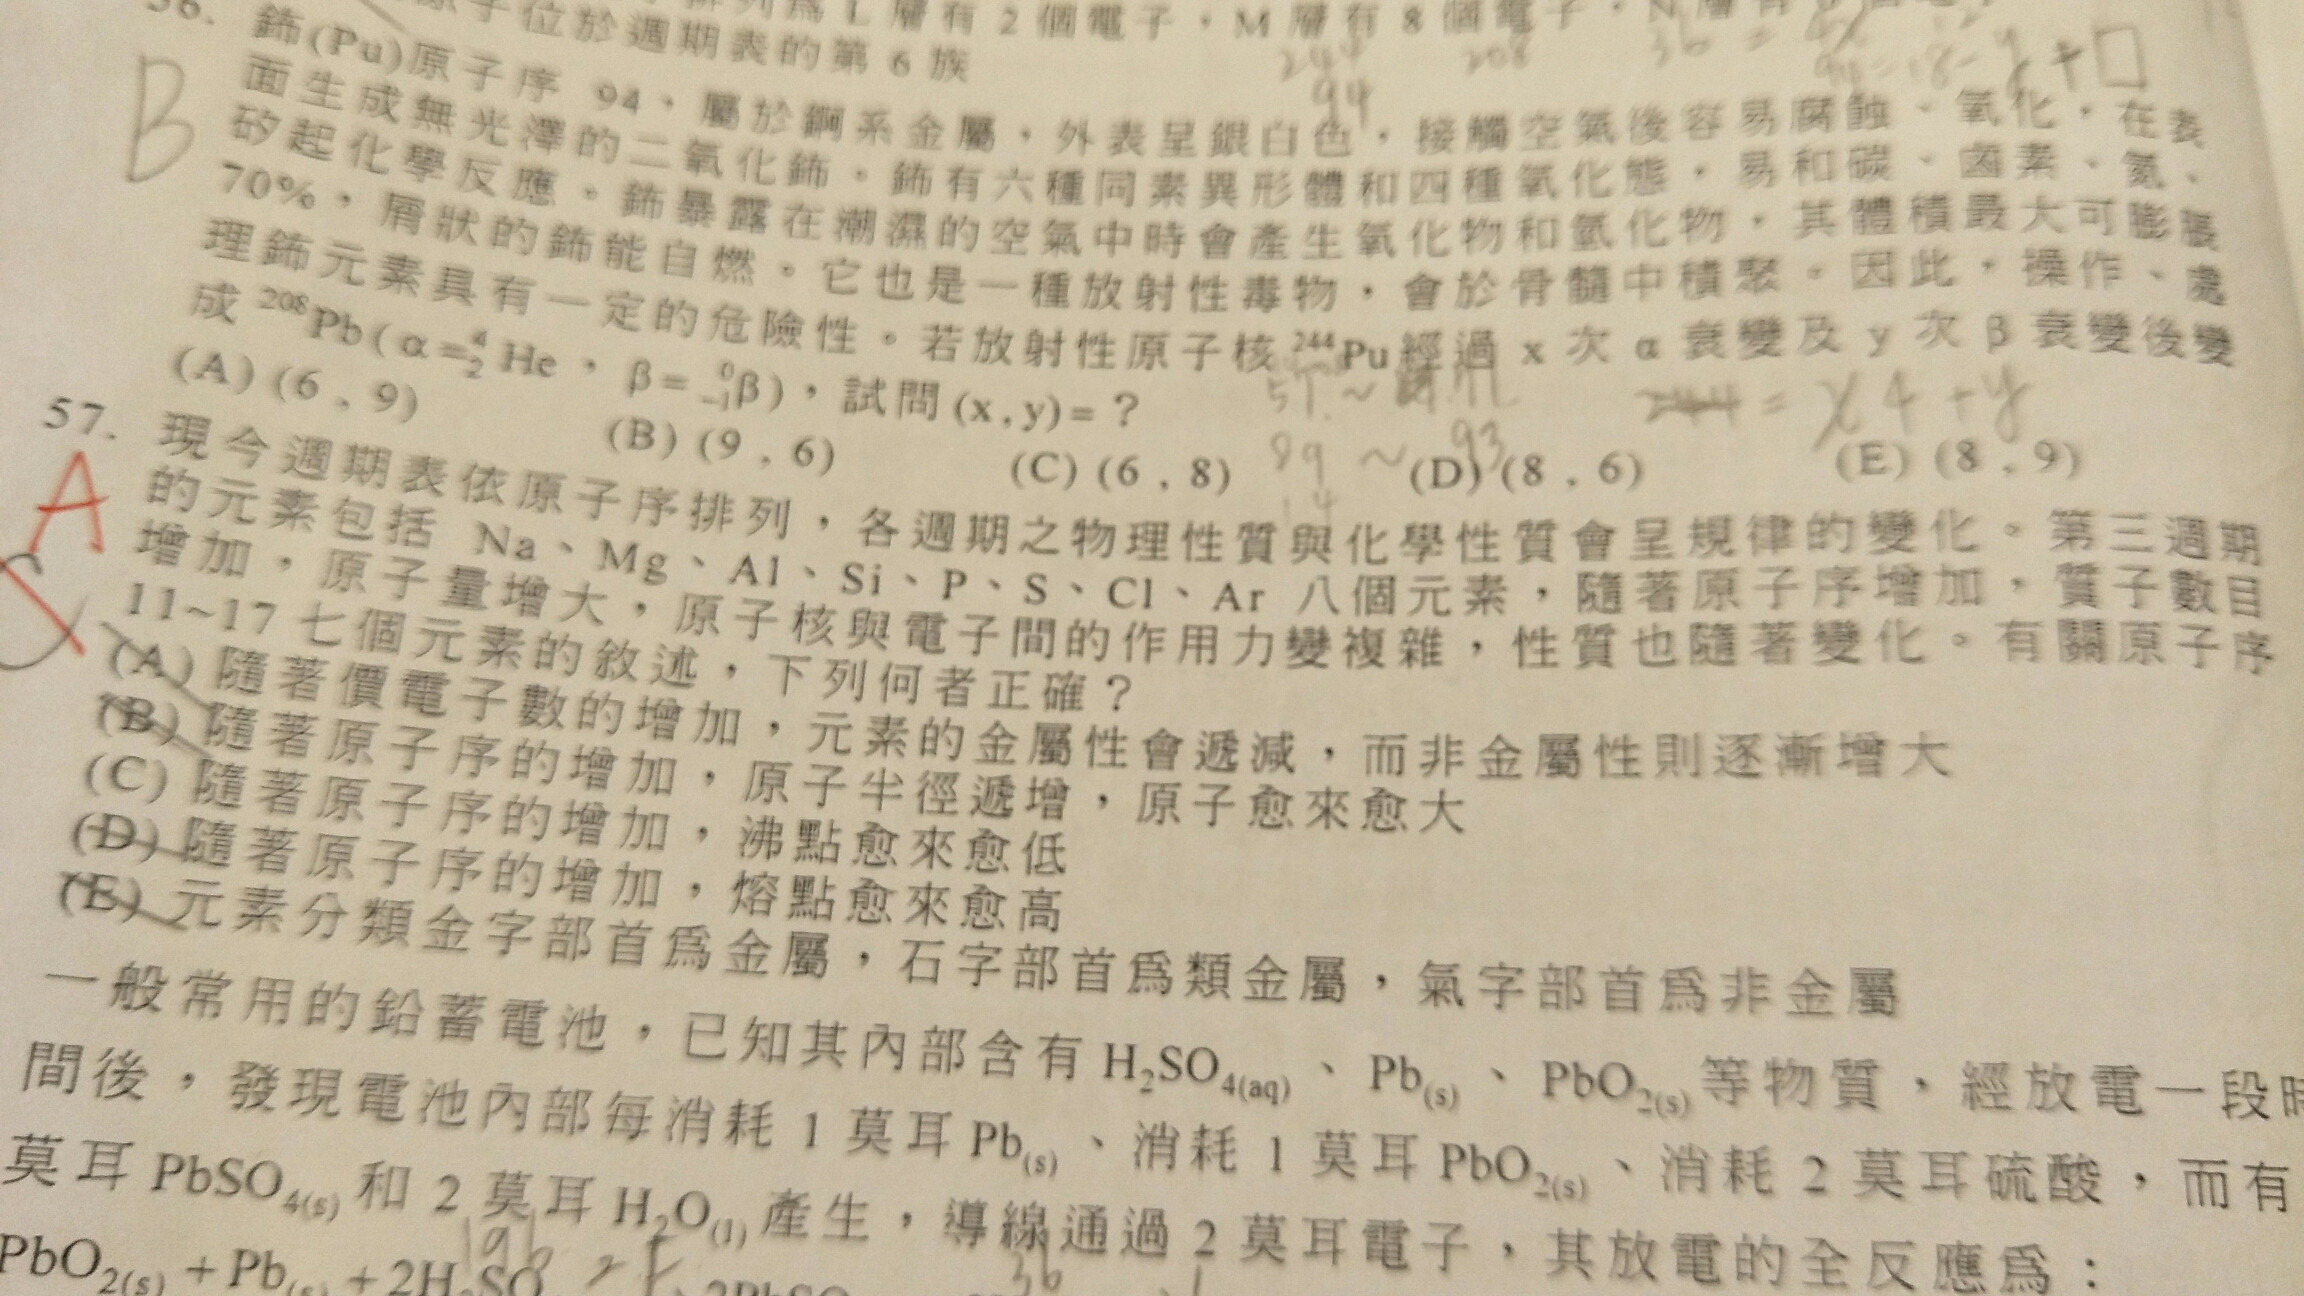 位於週期表的第 6 族
56. 鈽(Pu)原子序 94,屬於錒系金屬,外表呈銀白色,接觸空氣後容易腐蝕、氧化,在表
面生成無光澤的二氧化鈽。鈽有六種同素異形體和四種氧化態,易和碳、鹵素、氮、
矽起化學反應。鈽暴露在潮濕的空氣中時會產生氧化物和氫化物,其體積最大可膨脹
70%,屑狀的鈽能自燃。它也是一種放射性毒物,會於骨髓中積聚。因此,操作、處
理鈽元素具有一定的危險性。若放射性原子核 ²⁴⁴Pu 經過 x 次 α 衰變及 y 次 β 衰變後變
成 ²⁰⁸Pb(α=⁴₂He,β=⁰₋₁β),試問(x,y)=?
(A) (6,9) (B) (9,6) (C) (6,8) (D) (8,6) (E) (8,9)
B
244 = x4 + y
57. 現今週期表依原子序排列,各週期之物理性質與化學性質會呈規律的變化。第三週期
的元素包括 Na、Mg、Al、Si、P、S、Cl、Ar 八個元素,隨著原子序增加,質子數目
增加,原子量增大,原子核與電子間的作用力變複雜,性質也隨著變化。有關原子序
11~17 七個元素的敘述,下列何者正確?
A
(A) 隨著價電子數的增加,元素的金屬性會遞減,而非金屬性則逐漸增大
(B) 隨著原子序的增加,原子半徑遞增,原子愈來愈大
(C) 隨著原子序的增加,沸點愈來愈低
(D) 隨著原子序的增加,熔點愈來愈高
(E) 元素分類金字部首為金屬,石字部首為類金屬,氣字部首為非金屬
一般常用的鉛蓄電池,已知其內部含有 H₂SO₄(aq)、Pb(s)、PbO₂(s)等物質,經放電一段時
間後,發現電池內部每消耗 1 莫耳 Pb(s)、消耗 1 莫耳 PbO₂(s)、消耗 2 莫耳硫酸,而有
莫耳 PbSO₄(s) 和 2 莫耳 H₂O(l) 產生,導線通過 2 莫耳電子,其放電的全反應為:
PbO₂(s) + Pb(s) + 2H₂SO